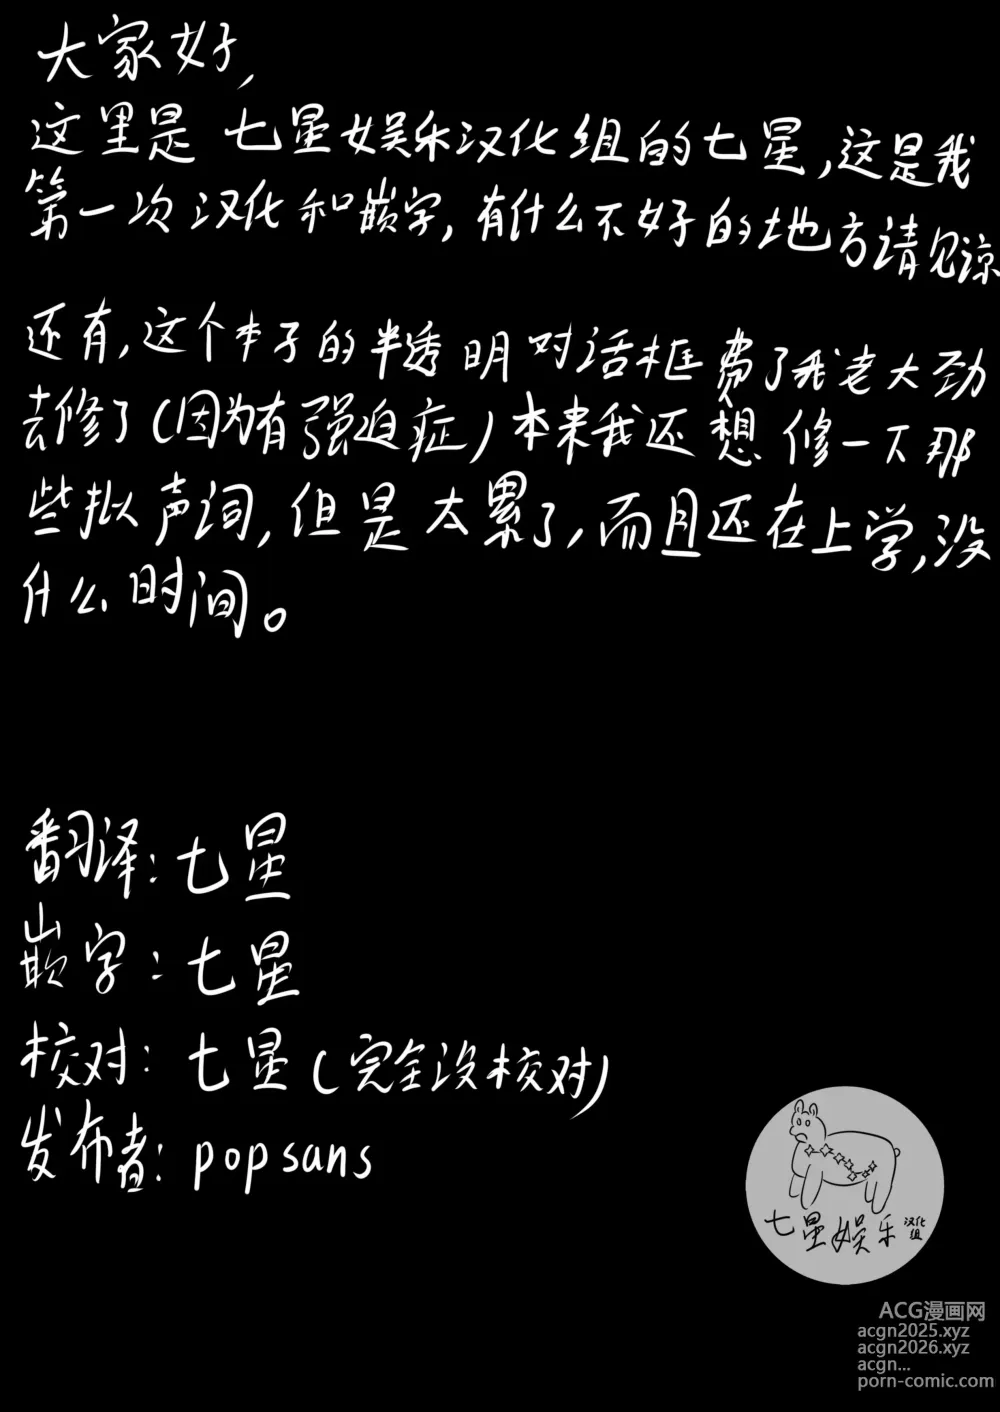 大家好,
这里是 七星娱乐汉化组的七星,这是我
第一次汉化和嵌字,有什么不好的地方请见谅
还有,这个本子的半透明对话框费了我老大劲
去修了(因为有强迫症)本来我还想修一下那
些拟声词,但是太累了,而且还在上学,没
什么时间。
翻译:七星
嵌字:七星
校对:七星(完全没校对)
发布者:popsans
七星娱乐汉化组
ACG漫画网
acgn2025.xyz
acgn2026.xyz
acgn...
porn-comic.com